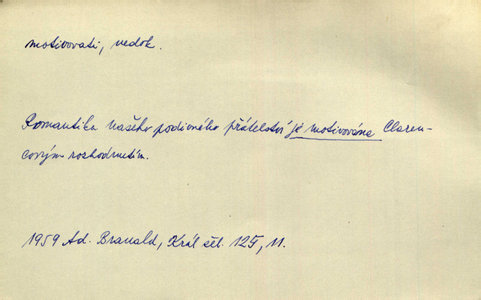 motivovati, nedok.
Romantika našeho podivného přátelství je motivována Claren-
covým rozhodnutím.
1959 Ad. Branald, Král šel. 125, 11.